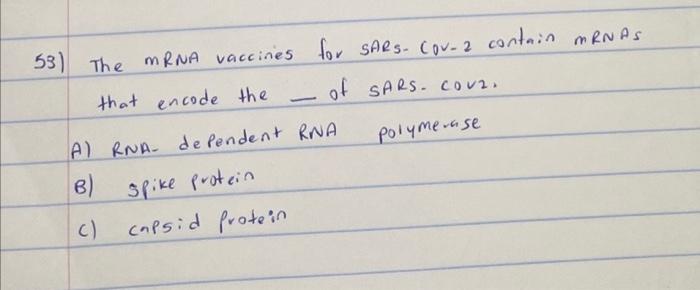 53) The mRNA vaccines for SARS-COV-2 contain mRNAs
that encode the — of SARS-COV2.
A) RNA-dependent RNA polymerase
B) spike protein
C) capsid protein